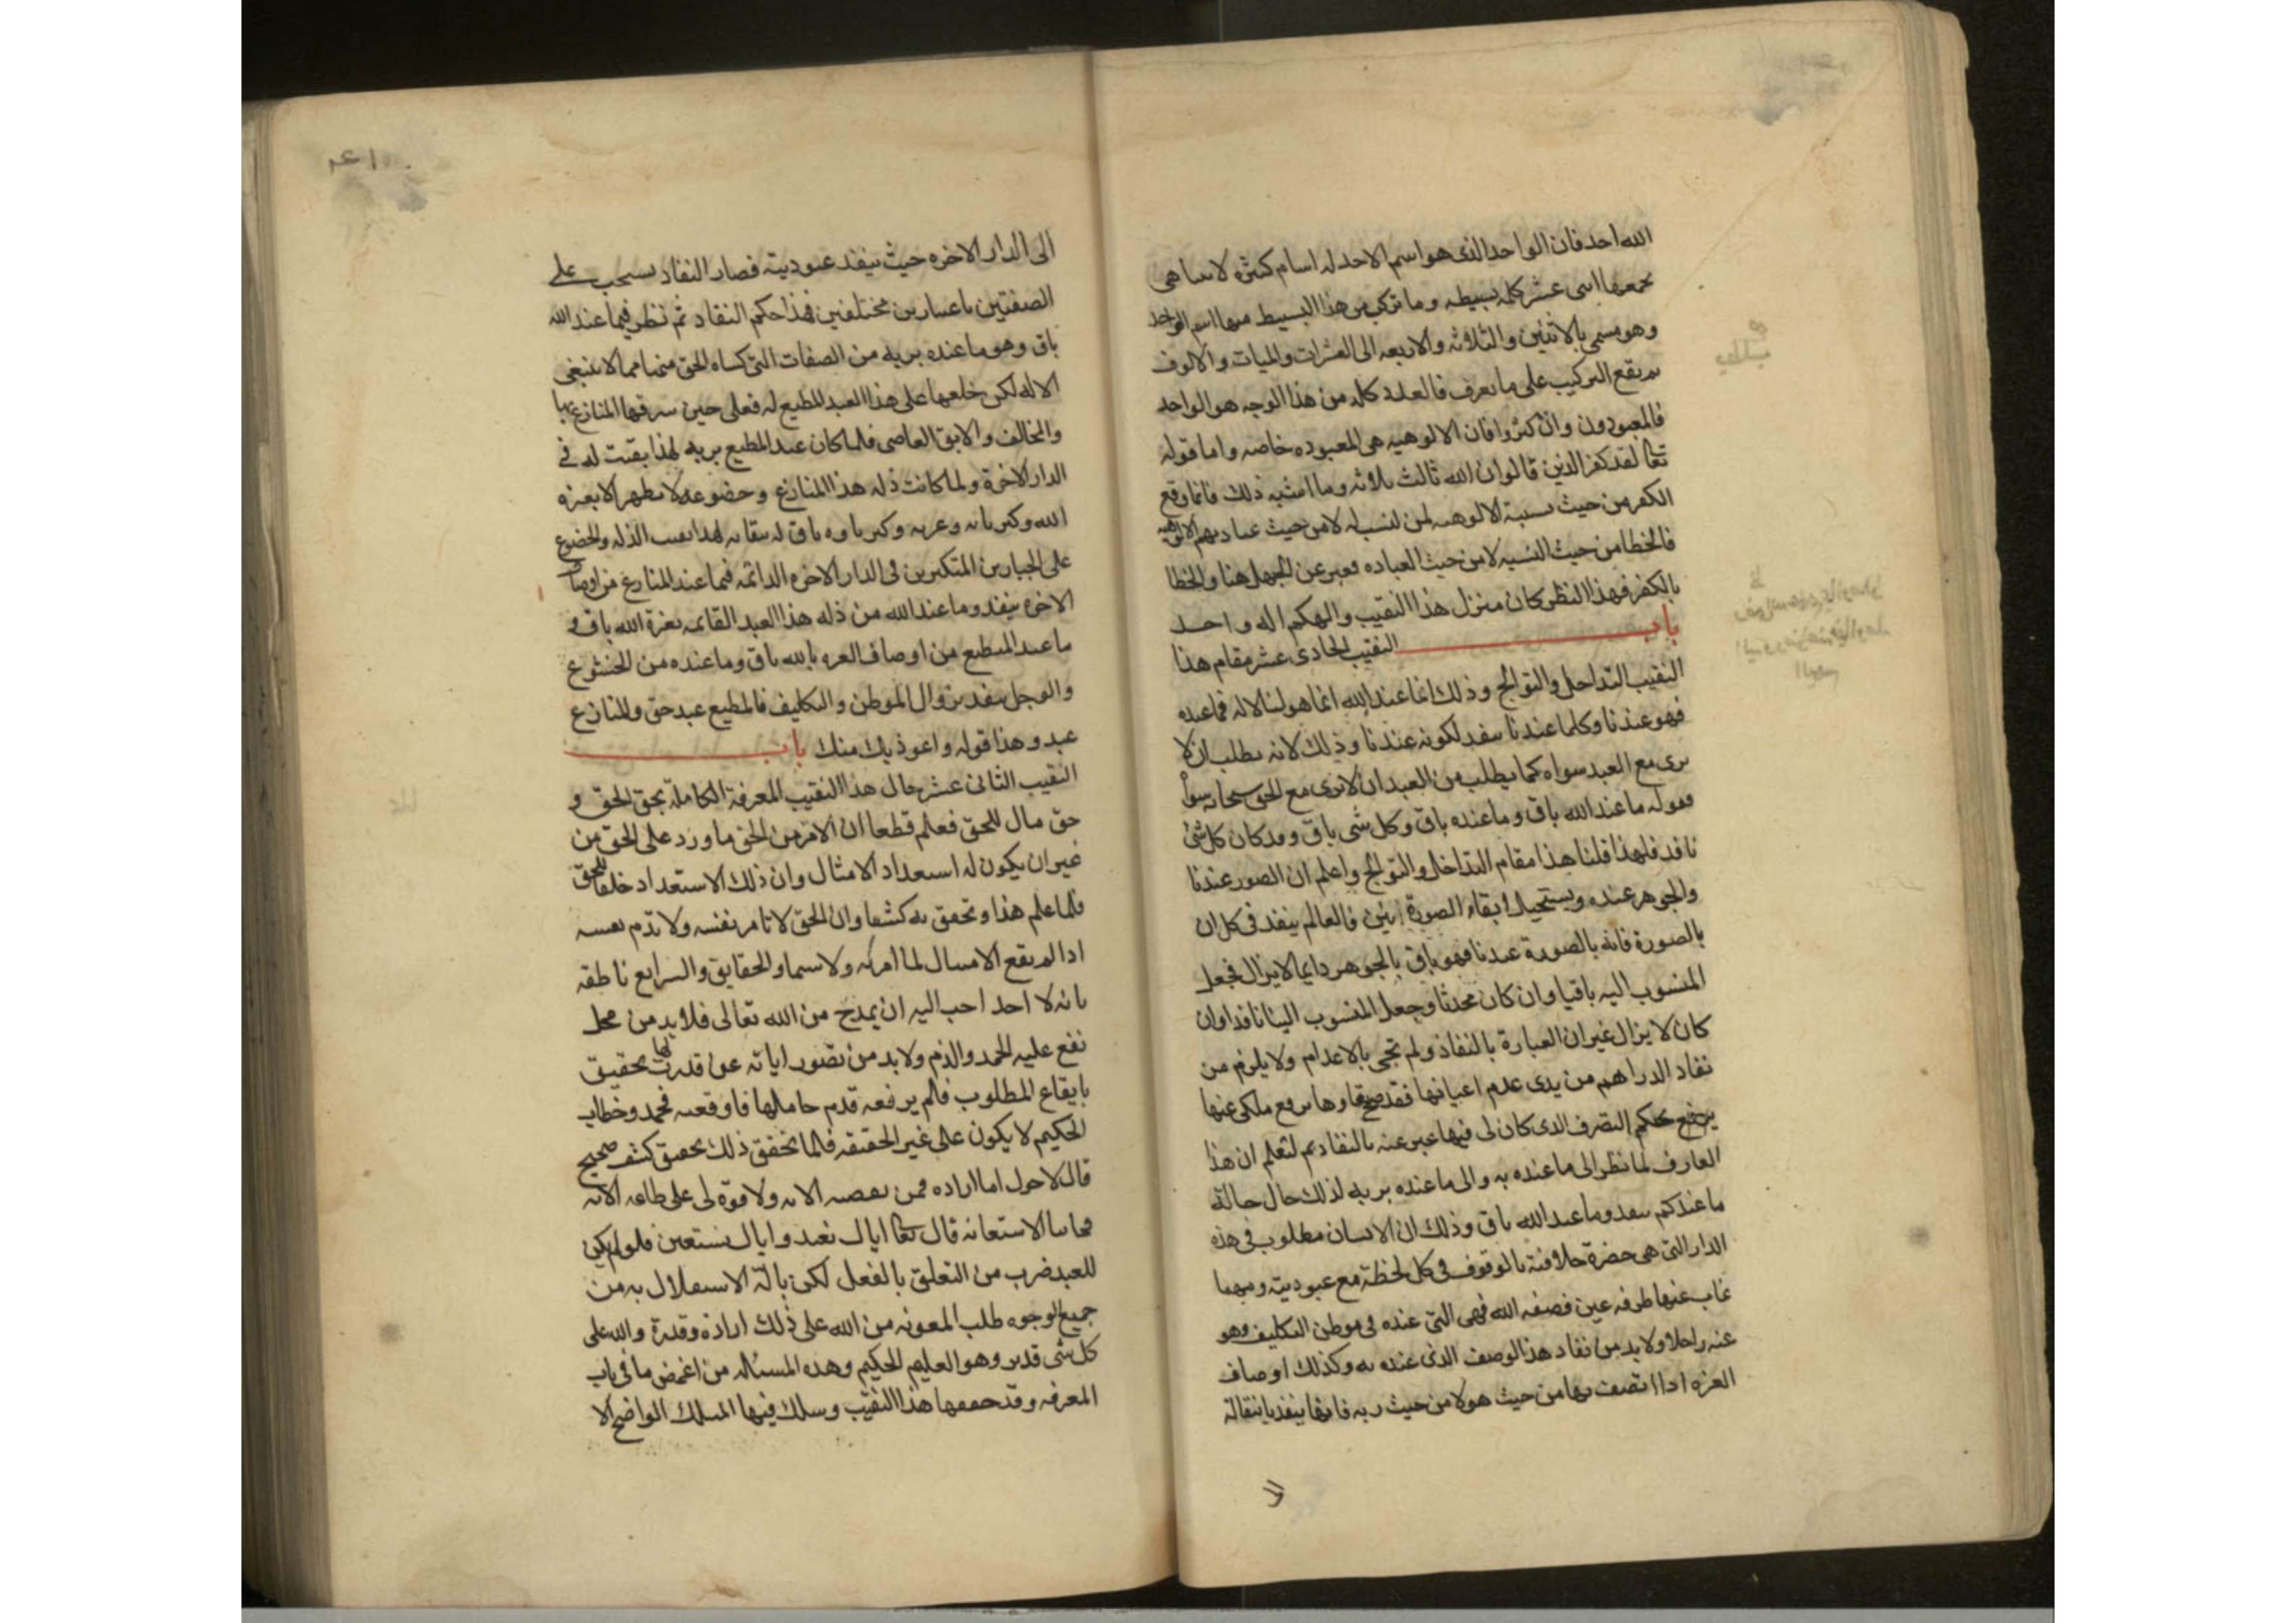 الله احد فان الواحد الذى هو اسم الاحد له اسام كثيره لا تتناهى
يجمعها اثنى عشر كلمه بسيطه وما تركب من هذا البسيط منها اسم الواحد
وهو مسمى بالاثنين والثلاثه والاربعه الى العشرات والميات والالوف
ثم يقع التركيب على ما تعرف فالعدد كله من هذا الوجه هو الواحد
فالمعبودون وان كثروا فان الالوهيه هى المعبوده خاصه واما قوله
تعا لقد كفر الذين قالوا ان الله ثالث ثلاثه وما اشبه ذلك فانما وقع
الكفر من حيث نسبة الالوهيه لمن لنسب له لا من حيث عبادتهم الالوهيه
فالخطا من حيث النسبه لا من حيث العباده فعبر عن الجهل هنا والخطا
بالكفر فهذا النظر كان منزل هذا النقيب والهكم اله واحد
باب النقيب الحادى عشر مقام هذا
النقيب التداخل والتوالج وذلك انما عند الله انما هو لنا لا له فما عنده
فهو عندنا وكلما عندنا ينفد لكونه عندنا وذلك لانه يطلب ان لا
يرى مع العبد سواه كما يطلب من العبد ان لا يرى مع الحق سبحانه سواه
فقوله ما عند الله باق وما عنده باق وكل شى باق وقد كان كل شئ
نافد فلهذا قلنا هذا مقام التداخل والتوالج واعلم ان الصور عندنا
والجوهر عنده ويستحيل ابقاء الصورة اثنين فالعالم ينفد فى كل ان
بالصورة فانه بالصورة عندنا فهو باق بالجوهر دايما لا يزال فجعل
المنسوب اليه باقيا وان كان محدثا وجعل المنسوب الينا نافدا وان
كان لا يزال غير ان العبارة بالنفاد ولم تجى بالاعدام ولا يلزم من
نفاد الدراهم من يدى عدم اعيانها فقد صح بقاوها مع رفع ملكى عنها
يرفع حكم التصرف الذى كان لى فيها عبر عنه بالنفاد ثم لتعلم ان هذا
العارف لما نظر الى ما عنده به والى ما عنده بربه لذلك حال حالة
ما عندكم ينفد وما عند الله باق وذلك ان الانسان مطلوب فى هذه
الدار التى هى حضرة خلافته بالوقوف فى كل لحظة مع عبوديته ومهما
غاب عنها طرفه عين فصفه الله فهى التى عنده فى موطن التكليف وهو
عنه راحلا ولا بد من نفاد هذا الوصف الذى عنده به وكذلك اوصاف
العزه اذا اتصف بها من حيث هو لا من حيث ربه فانها ينفد بانتقالة
الى
الى الدار الاخره حيث ينفد عبوديته فصار النفاد يسحب على
الصفتين باعتبارين مختلفين فهذا حكم النفاد ثم نظر فيما عند الله
باق وهو ما عنده بربه من الصفات التى كساه الحق منها مما لا ينبغى
الا له لكن خلعها على هذا العبد المطيع له فعلى حين سرقها المنازع بها
والمخالف والابق العاصى فلما كان عند المطيع بربه لهذا بقيت له فى
الدار الاخرة ولما كانت ذله هذا المنازع وخضوعه لا تظهر الا بعزه
الله وكبريائه وعزته وكبرياوه باق له بقائه لهذا بقيت الذله والخضوع
على الجبارين المتكبرين فى الدار الاخره الدائمه فما عند المنازع من اوصاف
الاخره ينفد وما عند الله من ذله هذا العبد القائمه بعزة الله باق و
ما عند المطيع من اوصاف العزه بالله باق وما عنده من الخشوع
والوجل ينفد بزوال الموطن والتكليف فالمطيع عبد حق والمنازع
عبد وهذا قوله واعوذ بك منك باب
النقيب الثانى عشر حال هذا النقيب المعرفة الكاملة بحق الحق و
حق مال للحق فعلم قطعا ان الامر من الحق ما ورد على الحق من
غير ان يكون له استعداد الامثال وان ذلك الاستعداد خلقا للحق
فلما علم هذا وتحقق به كشفا وان الحق لا تامر نفسه ولا تذم نفسه
اذا لم يقع الامتثال لما امر به ولا سيما والحقايق والشرايع ناطقه
بانه لا احد احب اليه ان يمدح من الله تعالى فلا بد من محل
تقع عليه الحمد والذم ولا بد من تصور اياته عن قدرت لها بحقيق
بايقاع المطلوب فلم يرفعه قدم حاملها فاوقعته فحمد وخطاب
الحكيم لا يكون على غير الحقيقه فلما تحقق ذلك تحقيق كشف صحيح
قال لا حول اما اراده فمن بعصمه الا به ولا قوة لى على طاعه الا به
فجاءنا الاستعانه قال تعا اياك نعبد واياك نستعين فلو لم يكن
للعبد ضرب من التعلق بالفعل لكن بالة الاستقلال به من
جميع الوجوه طلب المعونه من الله على ذلك ارادة وقدرة والله على
كل شى قدير وهو العليم الحكيم وهذه المسئاله من اغمض ما فى باب
المعرفه وقد حققها هذا النقيب وسلك فيها المسلك الواضح الا